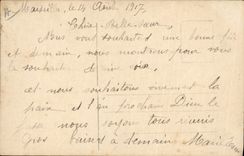 Marseille, le 14 Août 1917
Chère Belle-sœur
Nous vous souhaitons une bonne fête
et demain, nous viendrons pour vous
la souhaiter de vive voix
et nous souhaitons vivement la
paix et l'an prochain Dieu le
nous soyons tous réunis
Gros baisers à demain Marie